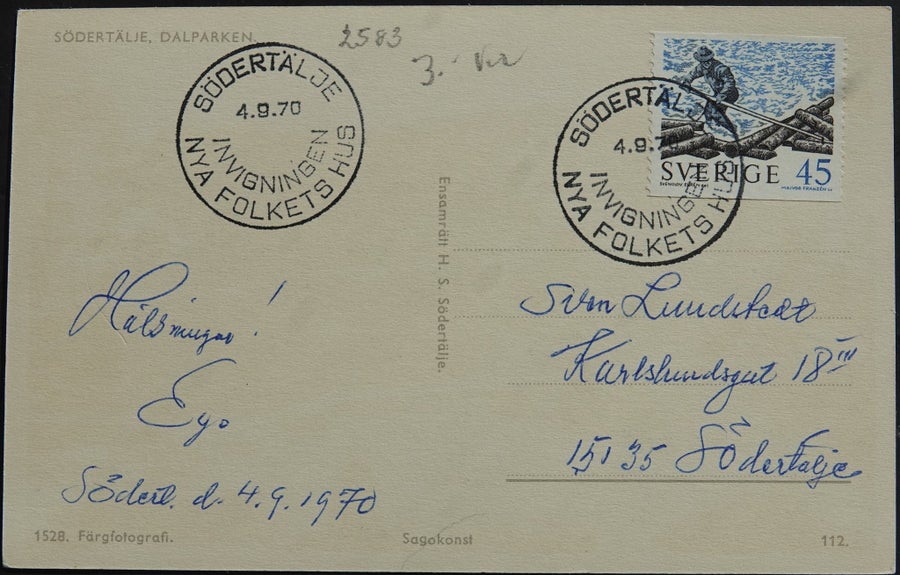 SÖDERTÄLJE, DALPARKEN.
2583
3:-
SÖDERTÄLJE
4.9.70
INVIGNINGEN
NYA FOLKETS HUS
SÖDERTÄLJE
4.9.70
INVIGNINGEN
NYA FOLKETS HUS
SVERIGE 45
MAJVOR FRANZÉN
Ensamrätt H. S. Södertälje.
Hälsningar!
Södert. d. 4.9.1970
Sven Lundstedt
Karlslundsgat 18 III
151 35 Södertälje
1528. Färgfotografi.
Sagokonst
112.